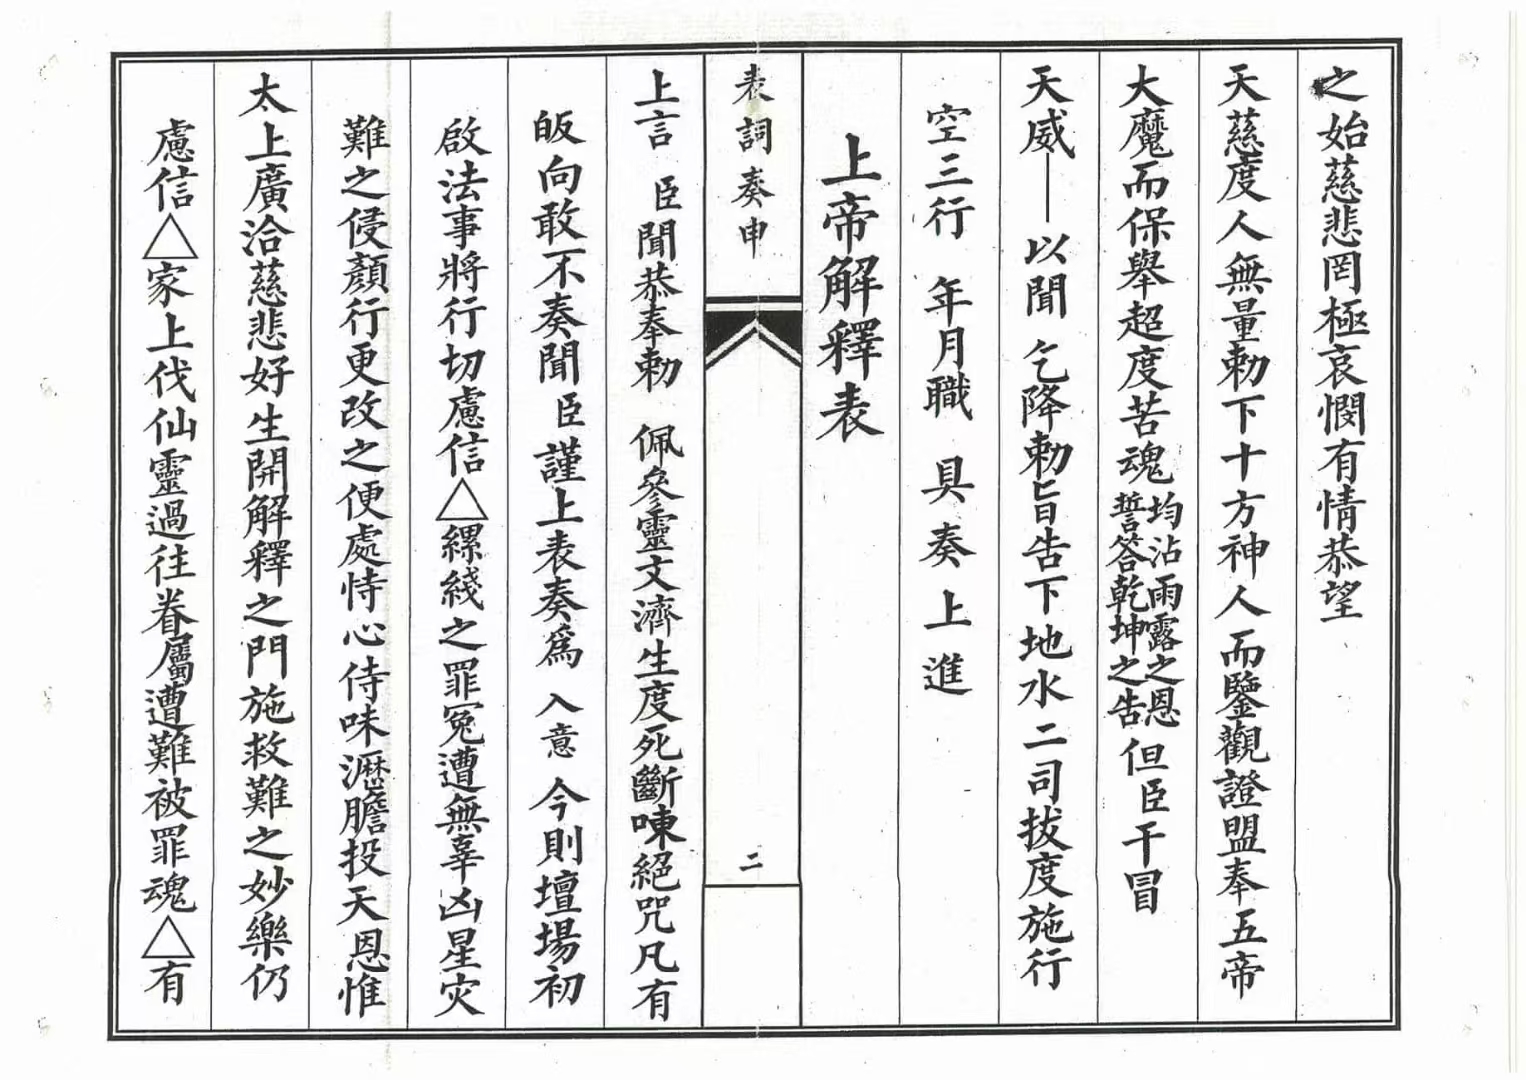 之始慈悲罔極哀憫有情恭望
天慈度人無量勅下十方神人而鑒觀證盟奉五帝
大魔而保舉超度苦魂均沾雨露之恩誓答乾坤之告但臣干冒
天威——以聞 乞降勅旨告下地水二司拔度施行
空三行 年月職 具奏上進
上帝解釋表
表詞奏申 二
上言 臣聞恭奉勅 佩參靈文濟生度死斷㖦絕咒凡有
皈向敢不奏聞臣謹上表奏為 入意 今則壇場初
啟法事將行切慮信△縲綫之罪冤遭無辜凶星灾
難之侵顏行更改之便處恃心侍味瀝膽投天恩惟
太上廣洽慈悲好生開解釋之門施救難之妙樂仍
慮信△家上伐仙靈過往眷屬遭難被罪魂△有